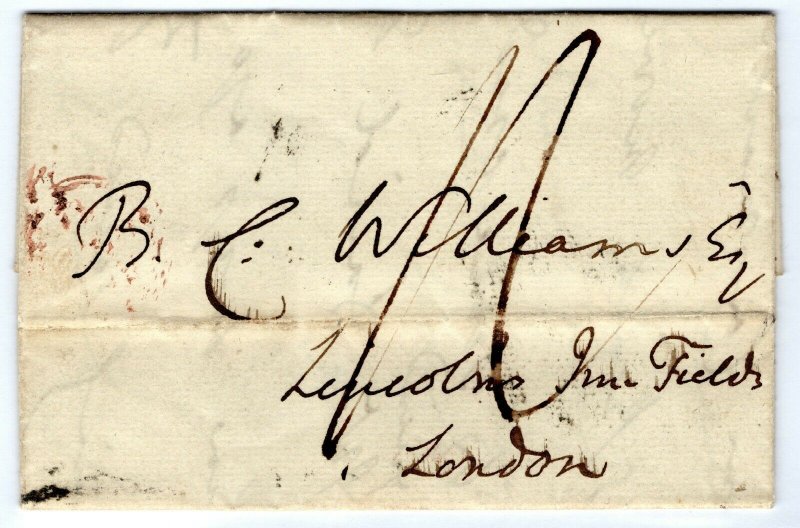 B. C. Williams Esq
Lincolns Inn Fields
London